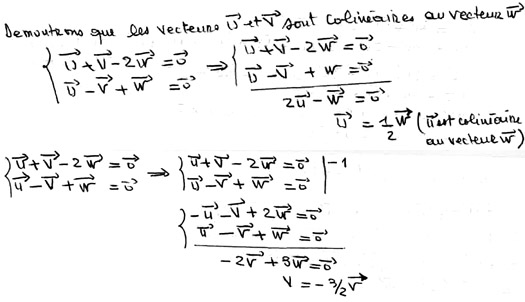 Demontrons que les vecteurs U⃗ et V⃗ sont colinéaires au vecteur W⃗
{ U⃗ + V⃗ - 2W⃗ = 0⃗ ⇒ { U⃗ + V⃗ - 2W⃗ = 0⃗
U⃗ - V⃗ + W⃗ = 0⃗ U⃗ - V⃗ + W = 0⃗
2U⃗ - W⃗ = 0⃗
U⃗ = 1/2 W⃗ (U⃗ est colinéaire
au vecteur W⃗)
{ U⃗ + V⃗ - 2W⃗ = 0⃗ ⇒ { U⃗ + V⃗ - 2W⃗ = 0⃗ | -1
U⃗ - V⃗ + W⃗ = 0⃗ U⃗ - V⃗ + W⃗ = 0⃗
{ -U⃗ - V⃗ + 2W⃗ = 0⃗
U⃗ - V⃗ + W⃗ = 0⃗
-2V⃗ + 3W⃗ = 0⃗
V = -3/2 V⃗